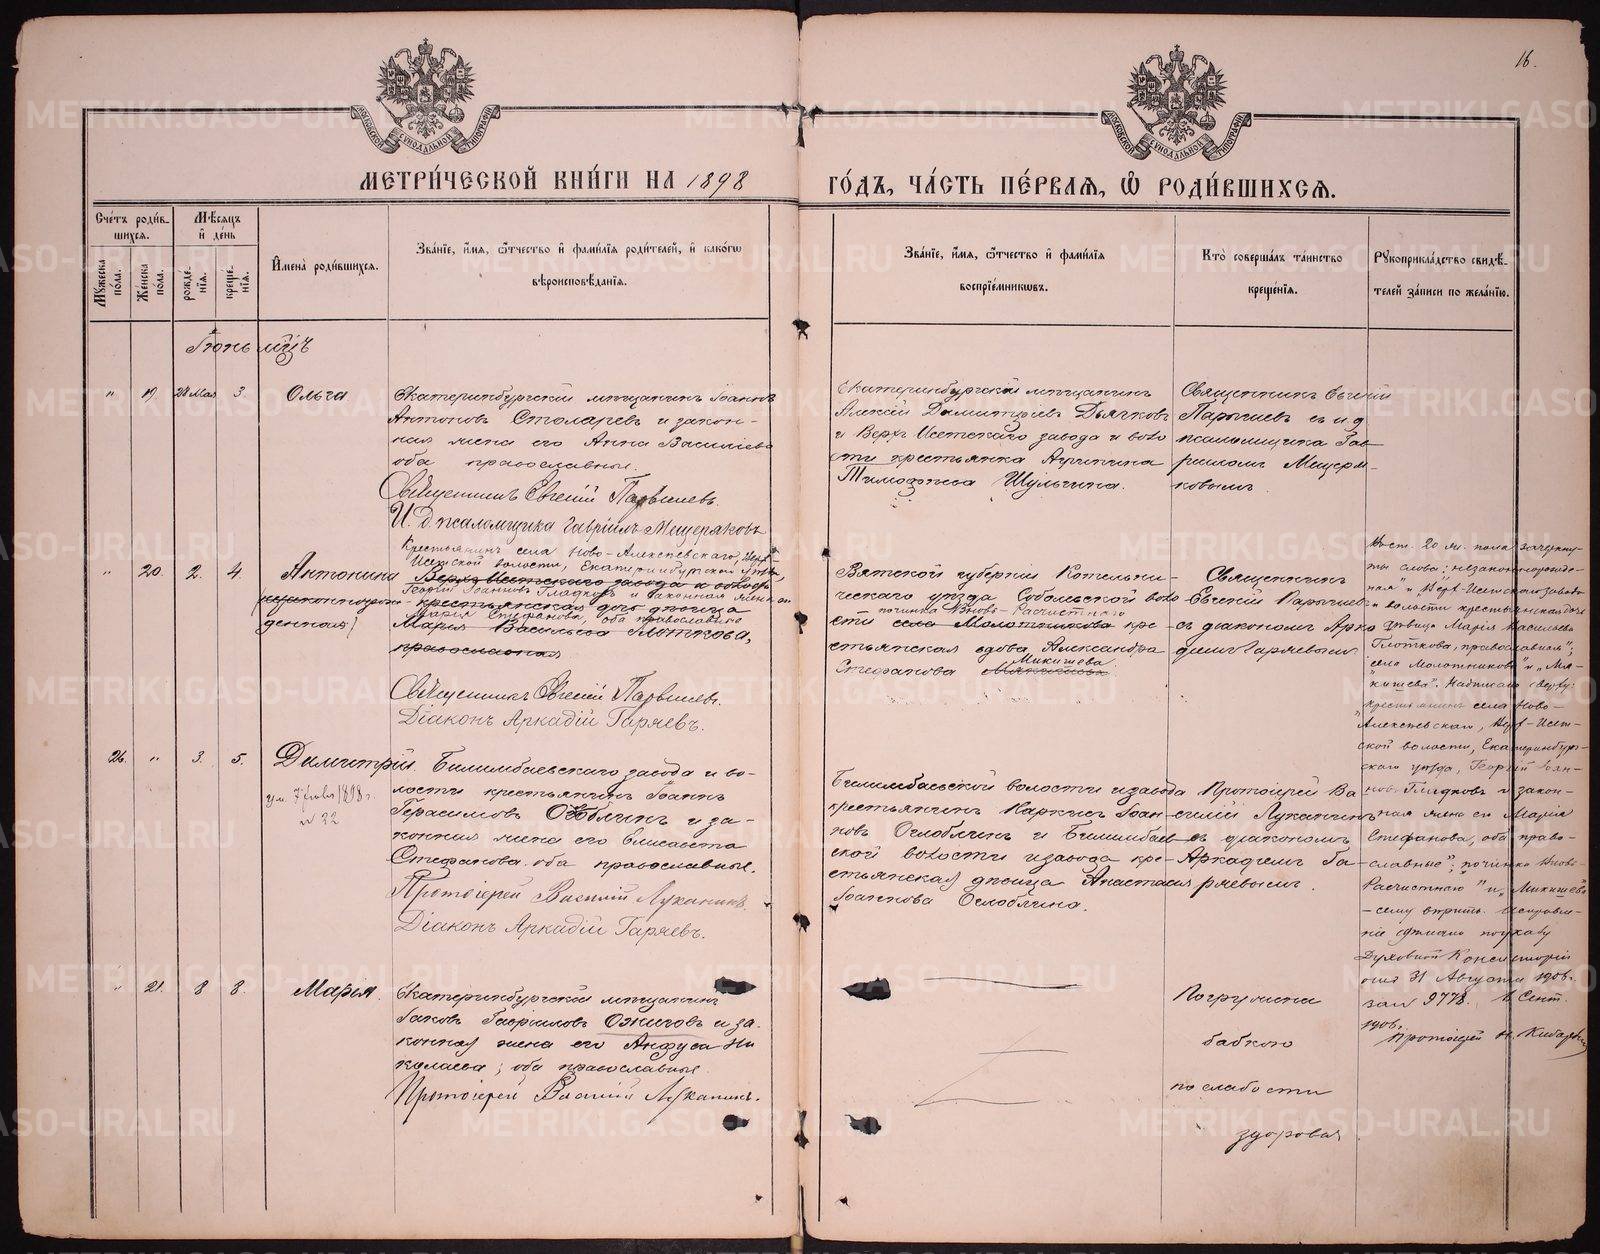 16.
МОСКОВСКОЙ СѴНОДАЛЬНОЙ ТИПОГРАФІИ
МОСКОВСКОЙ СѴНОДАЛЬНОЙ ТИПОГРАФІИ
МЕТРИ́ЧЕСКОЙ КНИ́ГИ НА 1898
ГО́ДЪ, ЧА́СТЬ ПЕ́РВАЯ, Ѽ РОДИ́ВШИХСЯ.
Сче́тъ роди́в-
шихся.
Мѣ́сяцъ
и҆ де́нь
Мꙋжеска по́ла.
Же́нска по́ла.
рожде́-
нія.
креще́-
нія.
И҆мена̀ роди́вшихся.
Зва́нїе, и҆́мя, ѻ҆́тчество и҆ фами́лїя роди́телей, и҆ како́гѡ
вѣроисповѣ́данїя.
Зва́нїе, и҆́мя, ѻ҆́тчество и҆ фами́лїя
воспрїе́мникѡвъ.
Кто̀ соверша́лъ та́инство
креще́нїя.
Рꙋкоприкла́дство свидѣ́-
телей за́писи по жела́нїю.
Іюнь мцъ
" 19. 28 Мая 3. Ольга
Екатеринбургскій мѣщанинъ Іоаннъ
Антоновъ Столаревъ и закон-
ная жена его Анна Василіева
оба православные.
Священникъ Евгеній Парышевъ
И. д. псаломщика Гавріилъ Мещеряковъ
Екатеринбургскій мѣщанинъ
Алексій Димитріевъ Дьячковъ
и Верхъ Исетскаго завода и воло
сти крестьянка Агрипина
Тимоѳеева Шульгина.
Священникъ Евгеній
Парышевъ съ и. д.
псаломщика Гав-
ріиломъ Мещеря-
ковымъ
" 20. 2. 4. Антонина
(незаконнорож-
денная)
Крестьянинъ села Ново-Алексѣевскаго, Верхъ-
Исетской волости, Екатеринбургскаго уѣзда,
Верхъ Исетскаго завода и волости
Георгій Іоанновъ Гладковъ и законная жена его
крестьянская дочь дѣвица
Марія Стефанова, оба православные
Марія Васильева Глоткова,
православная
Священникъ Евгеній Парышевъ.
Діаконъ Аркадій Гаряевъ.
Вятской губерніи Котельни-
ческаго уѣзда Собольской воло
починка Вновь-Расчистнаго
сти села Молотникова кре-
стьянская вдова Александра
Микишева
Стефанова Мякишева.
Священникъ
Евгеній Парышевъ
съ діакономъ Арка
діемъ Гаряевымъ
Въ ст. 20 ж. пола зачеркну-
ты слова: "незаконнорожде-
ная" и "Верх-Исетскаго завода
и волости крестьянская дочь
дѣвица Марія Васильева
Глоткова, православная";
"села Молотникова" и "Мя-
кишева". Надписано сверху:
"крестьянинъ села Ново-
Алексѣевскаго, Верх-Исет-
ской волости, Екатеринбург-
скаго уѣзда, Георгій Іоан-
новъ Гладковъ и закон-
ная жена его Марія
Стефанова, оба право-
славные"; "починка Вновь-
Расчистнаго" и "Микишева"
- сему вѣрить. Исправле-
ніе сдѣлано по указу
Духовной Консисторіи
отъ 31 Августа 1906.
за № 9778. Сент.
1906.
Протоіерей Н.
26. " 3. 5. Димитрій
ум. 7 1898 г.
№ 22
Билимбаевскаго завода и во-
лости крестьянинъ Іоаннъ
Герасимовъ Оглоблинъ и за-
конная жена его Елисавета
Стефанова. оба православные.
Протоіерей Василій Луканинъ.
Діаконъ Аркадій Гаряевъ.
Билимбаевской волости и завода
крестьянинъ Наркисъ Іоан-
новъ Оглоблинъ и Билимбаев
ской волости и завода кре-
стьянская дѣвица Анастасія
Іоаннова Оглоблина.
Протоіерей Ва
силій Луканинъ
съ діакономъ
Аркадіемъ Га-
ряевымъ.
" 21. 8 8. Марія.
Екатеринбургскій мѣщанинъ
Іаковъ Гавріиловъ Ожиговъ и за-
конная жена его Анфуса Ни
колаева; оба православные.
Протоіерей Василій Луканинъ.
Погружена
бабкою
по слабости
здоровья